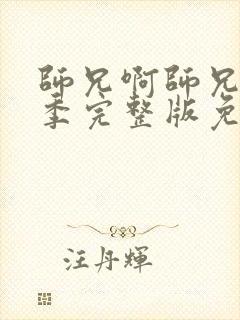 師兄啊師兄
季完整版免
汪丹輝